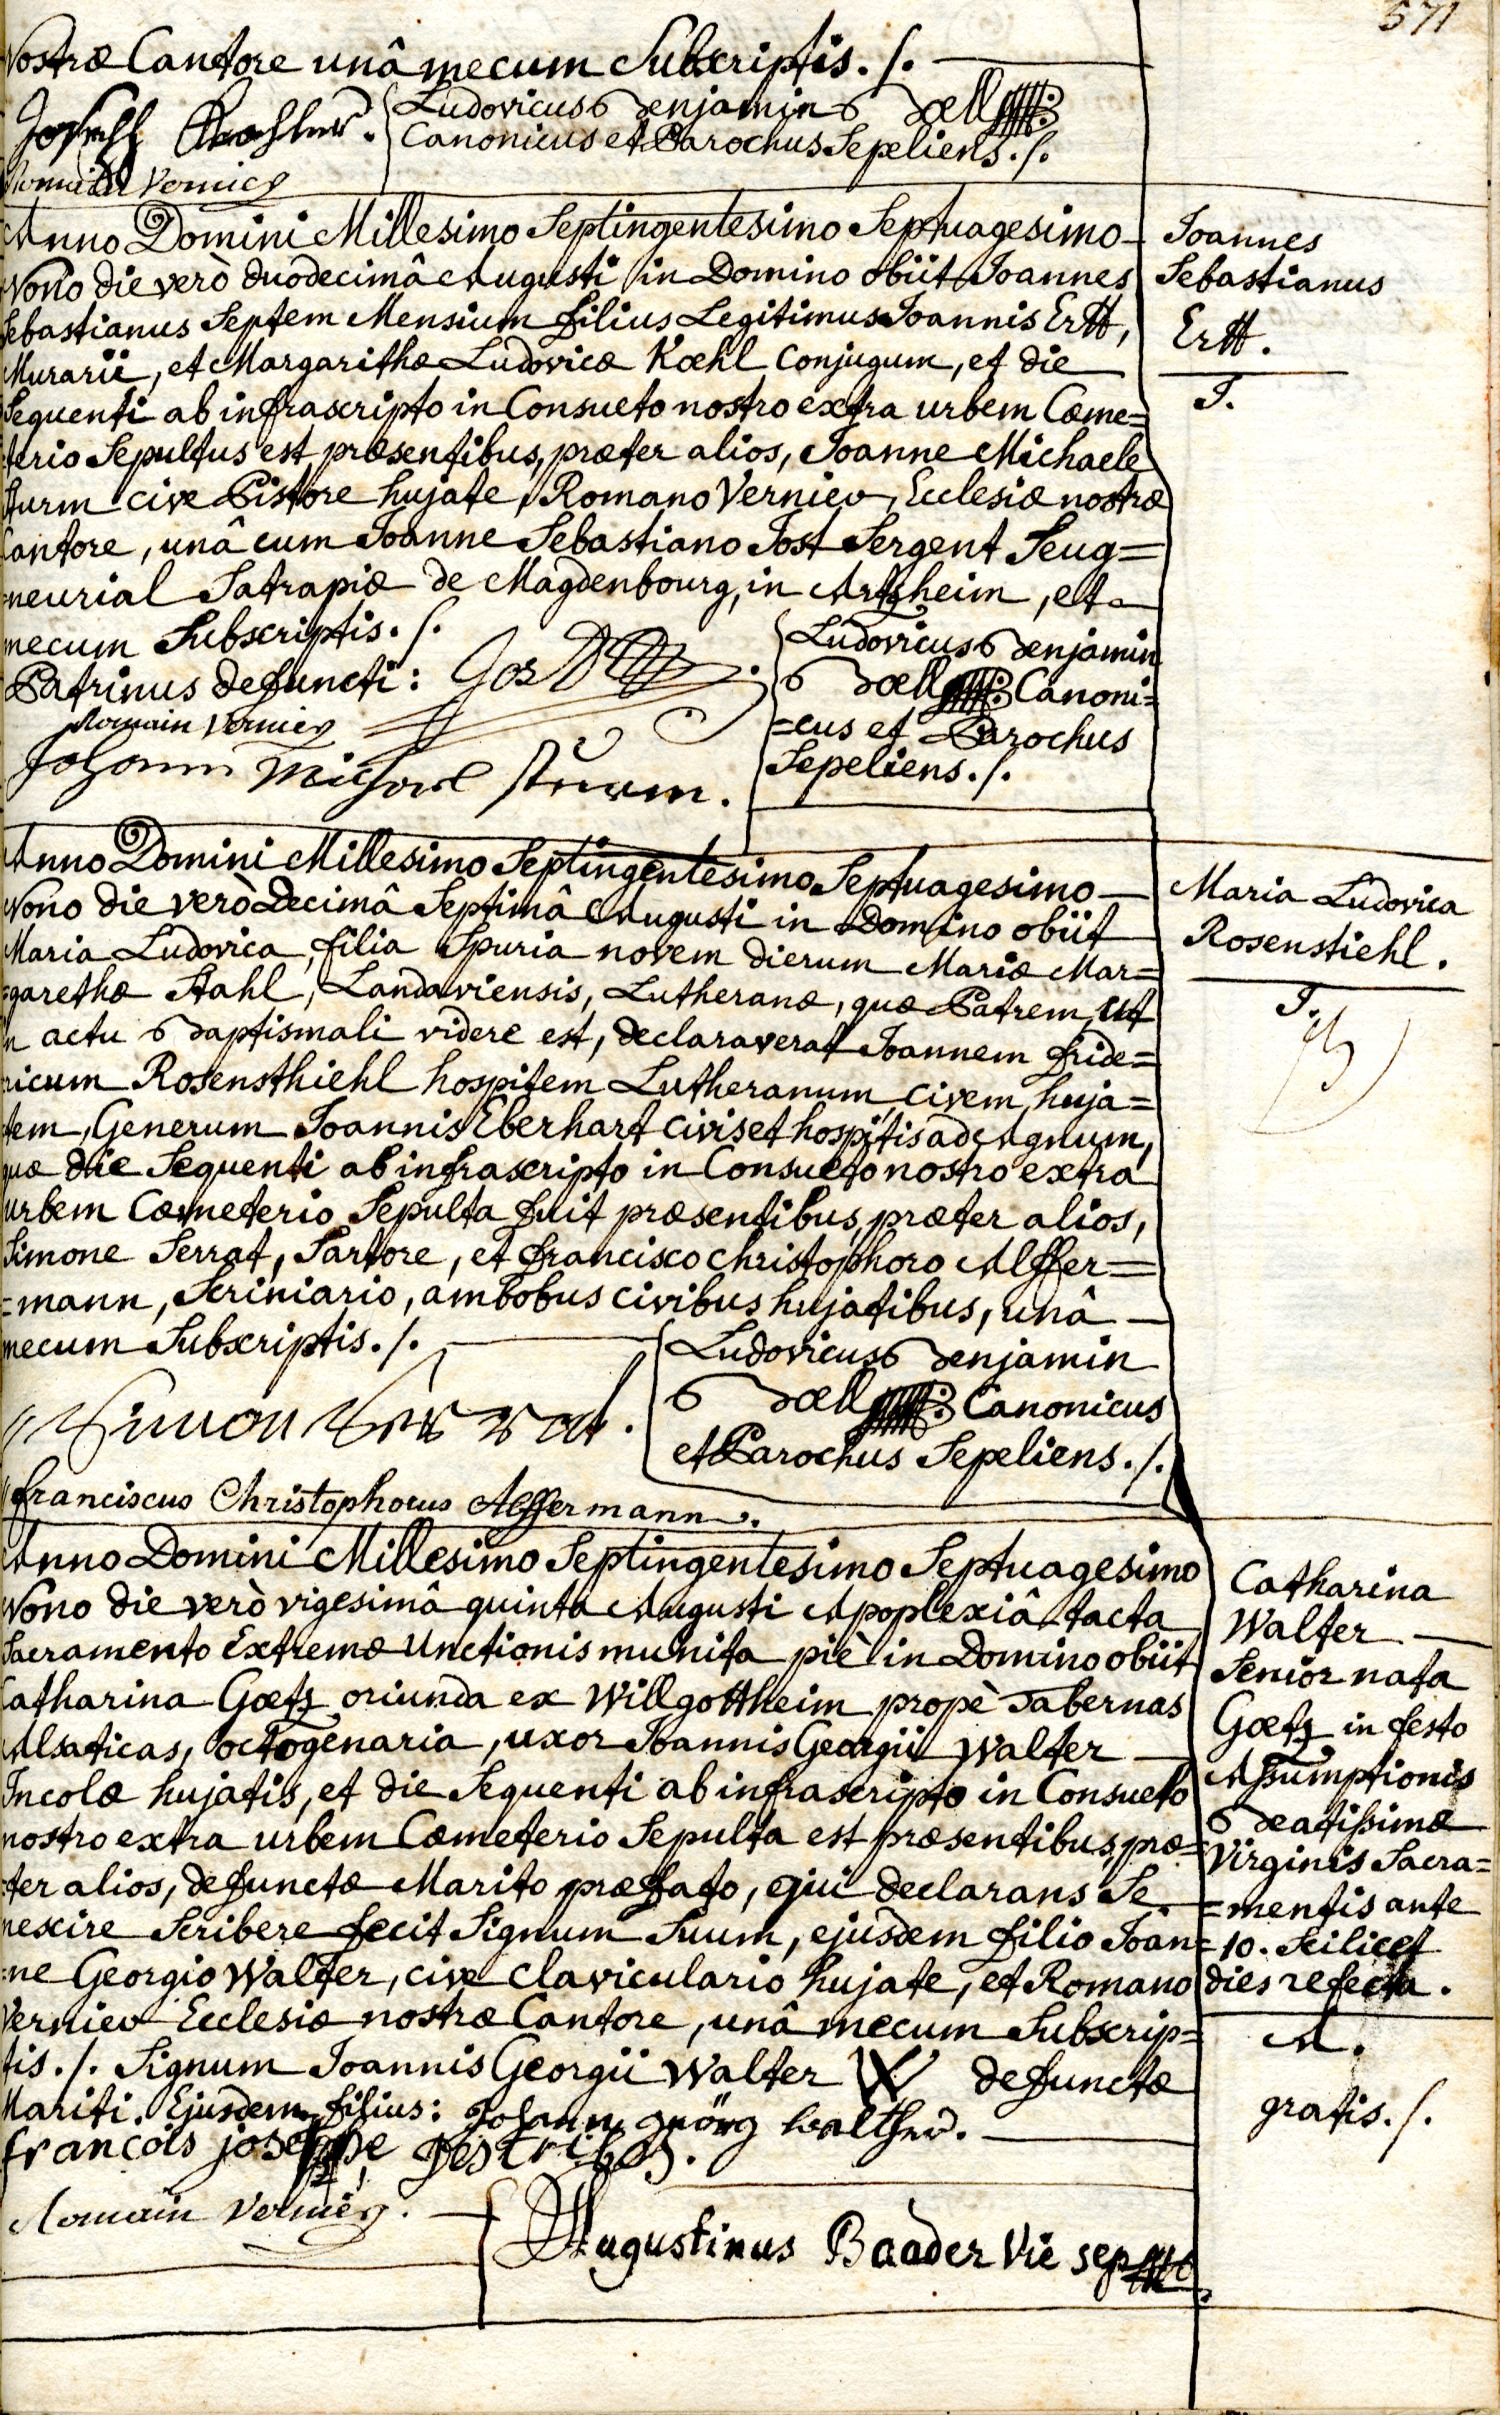 571
Nostræ Cantore unâ mecum Subscriptis. /.
Joseph
Ludovicus Benjamin Bœll
Canonicus et Parochus Sepeliens. /.
Romain Vernier
Anno Domini Millesimo Septingentesimo Septuagesimo
Nono die verò duodecimâ Augusti in Domino obiit Joannes
Sebastianus Septem Mensium filius Legitimus Joannis Ertt,
Murarii, et Margarithæ Ludovicæ Kœhl Conjugum, et die
Sequenti ab infrascripto in Consueto nostro extra urbem Cœme=
terio Sepultus est, præsentibus, præter alios, Joanne Michaele
Sturm cive Pistore hujate, Romano Vernier, Ecclesiæ nostræ
Cantore, unâ cum Joanne Sebastiano Jost Sergent Seug=
=neurial Satrapiæ de Magdenbourg, in Artzheim, et
mecum Subscriptis. /.
Patrinus defuncti: Jost
Romain Vernier
Johann Michael Sturm.
Ludovicus Benjamin
Bœll Canoni=
=cus et Parochus
Sepeliens. /.
Joannes
Sebastianus
Ertt.
J.
Anno Domini Millesimo Septingentesimo Septuagesimo
Nono die verò Decimâ Septimâ Augusti in Domino obiit
Maria Ludovica, filia Spuria novem dierum Mariæ Mar=
=garethæ Stahl, Landaviensis, Lutheranæ, quæ Patrem, ut
in actu Baptismali videre est, declaraverat Joannem fride=
ricum Rosensthiehl hospitem Lutheranum, civem huja=
tem, Generum Joannis Eberhart civis et hospitis ad Agnum,
quæ die Sequenti ab infrascripto in Consueto nostro extra
urbem Cœmeterio Sepulta fuit præsentibus, præter alios,
Simone Serrat, Sartore, et francisco Christophoro Alffer=
=mann, Scriniario, ambobus civibus hujatibus, unâ
mecum Subscriptis. /.
Simon Serrat.
franciscus Christophorus Alffermann.
Ludovicus Benjamin
Bœll Canonicus
et Parochus Sepeliens. /.
Maria Ludovica
Rosenstiehl.
J.
Anno Domini Millesimo Septingentesimo Septuagesimo
Nono die verò vigesimâ quinta Augusti Apoplexiâ tacta
Sacramento Extremæ Unctionis munita piè in Domino obiit
Catharina Gœtz oriunda ex Willgottheim propè Tabernas
Alsaticas, octogenaria, uxor Joannis Georgii Walter
Incolæ hujatis, et die Sequenti ab infrascripto in Consueto
nostro extra urbem Cœmeterio Sepulta est præsentibus, præ=
=ter alios, defunctæ Marito præfato, qui declarans Se
nescire Scribere fecit Signum Suum, ejusdem filio Joan=
=ne Georgio Walter, cive claviculario hujate, et Romano
Vernier Ecclesiæ nostræ Cantore, unâ mecum Subscrip=
tis. /. Signum Joannis Georgii Walter W defunctæ
Mariti. Ejusdem filius: Johann Georg Walther.
francois josephe
Romain Vernier.
Augustinus Baader Vic sep
Catharina
Walter
Senior nata
Gœtz in festo
Assumptionis
Beatissimæ
Virginis Sacra=
=mentis ante
10. Scilicet
dies refecta.
A.
gratis. /.